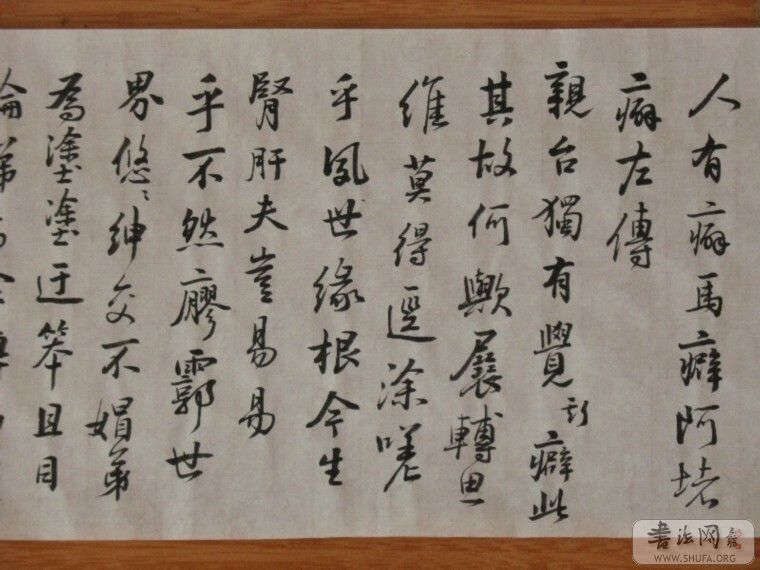 人有癖馬癖阿堵
癖左傳
親台獨有覺癖此
其故何歟展轉思
維莫得逕涂嗟
乎夙世缘根今生
腎肝夫豈易易
乎不然廖霩世
界悠〻紳交不娟弟
為塗塗迂笨且目
書法网
WWW.SHUFA.ORG